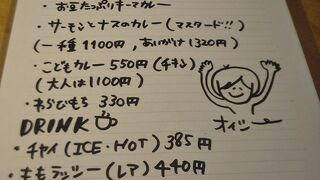 ・お豆たっぷりキーマカレー
・サーモンとナスのカレー(マスタード!!)
(一種1100円,あいがけ1320円)
・こどもカレー 550円(チキン)
(大人は1100円)
・わらびもち 330円
オイシー
DRINK
・チャイ(ICE・HOT) 385円
・ももラッシー(レア) 440円